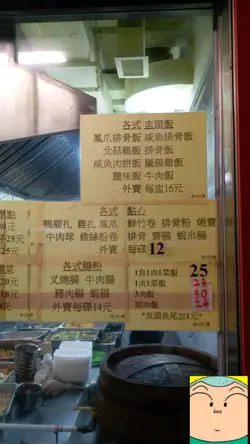 各式 盅頭飯
鳳爪排骨飯 咸魚排骨飯
北菇雞飯 排骨飯
咸魚肉餅飯 臘腸雞飯
臘味飯 牛肉飯
外賣 每盅16元
各式 點心
鴨腳扎 雞扎 鳳爪 鮮竹卷 排骨粉 燒賣
牛肉球 雞絲粉卷 排骨 齋腸 蝦米腸
外賣 每碟 12
各式腸粉
叉燒腸 牛肉腸
豬肉腸 蝦腸
外賣每碟14元
1魚1肉1菜飯 25
1肉1菜飯 23
3肉飯 30
兩肉飯 24
*魚頭魚尾加1元*